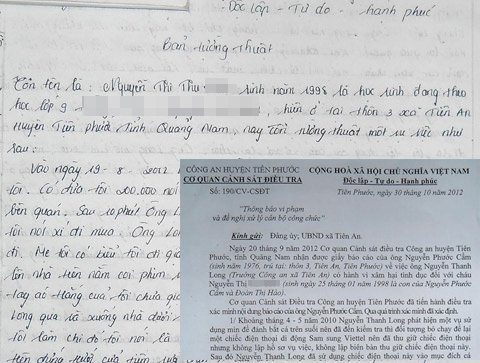 Độc lập - Tự do - Hạnh phúc
Bản tường thuật
Tôn tên là : Nguyễn Thị Thu sinh năm 1998 là học sinh đang theo
học lớp 9 hiện ở tại thôn 3 xã Tiên An
Huyện Tiên phước Tỉnh Quảng Nam, nay tôi tường thuật một sự việc như
sau:
Vào ngày 19 - 8 - 2012
tôi. Có đưa tôi 200.000 nói
bên quán. Sau 10 phút Ông L
tôi nói xi đi mua. Ông Lon
đi. Mẹ tôi có biểu tôi đi
lên nhà trên năm coi phim
tay áo Hàng của tôi chưa
Long qua lã xưởng nhà dưới
tôi làm chi đó tôi nói là
CÔNG AN HUYỆN TIÊN PHƯỚC
CƠ QUAN CẢNH SÁT ĐIỀU TRA
Số: 190/CV-CSĐT
CỘNG HOÀ XÃ HỘI CHỦ NGHĨA VIỆT NAM
Độc lập - Tự do - Hạnh phúc
Tiên Phước, ngày 30 tháng 10 năm 2012
"Thông báo vi phạm
và đề nghị xử lý cán bộ công chức"
Kính gửi: Đảng ủy; UBND xã Tiên An.
Ngày 20 tháng 9 năm 2012 Cơ quan Cảnh sát điều tra Công an huyện Tiên
Phước, tỉnh Quảng Nam nhận được giấy báo cáo của ông Nguyễn Phước Cẩm
(sinh năm 1976, trú tại: thôn 3, Tiên An, Tiên Phước) về việc ông Nguyễn Thanh
Long (Trưởng Công an xã Tiên An) có hành vi xâm hại tình dục đối với cháu
Nguyễn Thị (sinh ngày 25 tháng 01 năm 1998 là con của Nguyễn Phước Cẩm
và Đoàn Thị Hảo).
Cơ quan Cảnh sát Điều tra Công an huyện Tiên Phước đã tiến hành điều tra
xác minh nội dung báo cáo của ông Nguyễn Phước Cẩm. Qua quá trình xác minh đã xác định.
1/ Khoảng tháng 4 - 5 năm 2010 Nguyễn Thanh Long phát hiện một vụ sử
dụng mìn để đánh bắt cá trên suối nên đã đến kiểm tra thì đối tượng bỏ chạy để lại
một chiếc điện thoại di động Sam sung Viettel nhưng sau đó Long không báo cáo cho
cơ quan cấp trên về vụ việc, không lập biên bản thu giữ chiếc điện thoại này.
Sau đó Nguyễn Thanh Long đã sử dụng chiếc điện thoại này vào mục đích cá